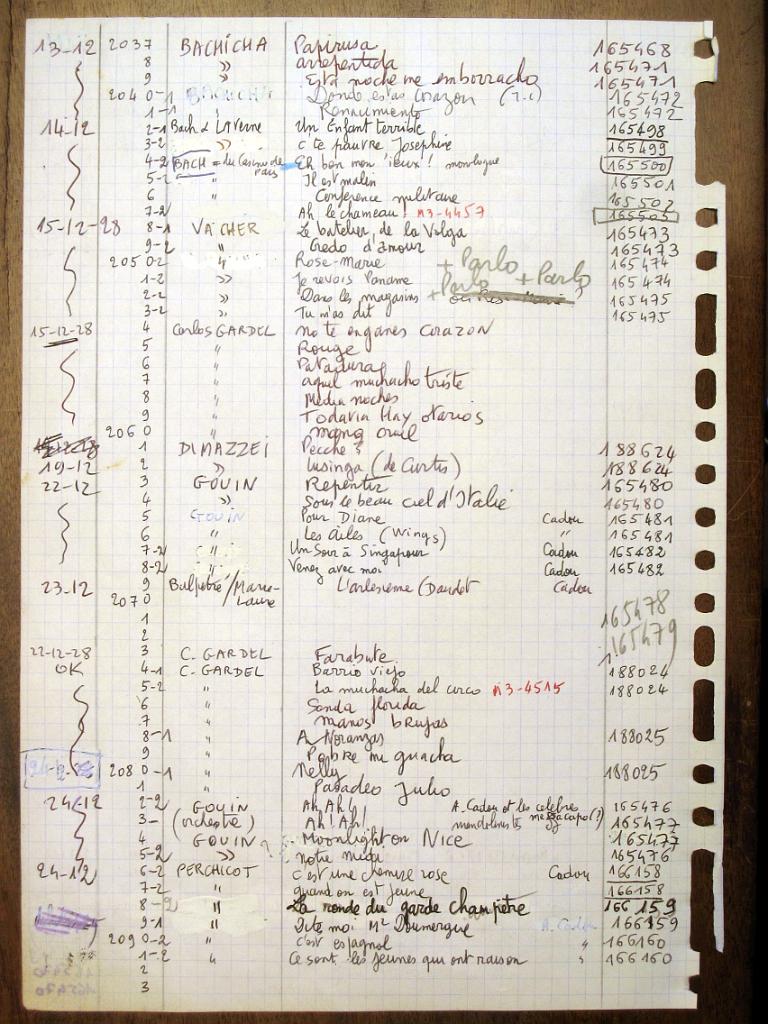 13-12 2037 BACHICHA Papirusa 165468
8 " arrepentida 165471
9 " Esta noche me emborracho 165471
2040-1 BACHICHA Donde estas Corazon (r.c) 165472
1-1 " Renunciamiento 165472
14-12 2-1 Bach & Laverne Un Enfant terrible 165498
3-2 " C'te pauvre Josephine 165499
4-2 BACH = du Casino de Paris Eh ben mon 'ieux! monologue 165500
5-2 " Il est malin 165501
6 " Conference militaire 165502
7-2 Ah le chameau! M3-4457 165503
15-12-28 8-1 VACHER Le batelier de la Volga 165473
9-2 " Credo d'amour 165473
2050-2 " Rose-Marie + Parlo 165474
1-2 " Je revois Paname + Parlo + Parlo 165474
2-2 " Dans les magasins 165475
3-2 " Tu m'as dit 165475
15-12-28 4 Carlos GARDEL no te enganes corazon
5 " Rouge
6 " Patadura
7 " aquel muchacho triste
8 " Media noches
9 " Todavia Hay otarios
2060 " mano cruel
1 DIMAZZEI Pecche? 188624
19-12 2 " Lusinga (de Curtis) 188624
22-12 3 GOUIN Repentir 165480
4 " Sous le beau ciel d'Italie 165480
5 GOUIN Pour Diane Cadou 165481
6 " Les ailes (Wings) " 165481
7-2 " Un Soir à Singapour Cadou 165482
8-2 " Venez avec moi Cadou 165482
23-12 9 Balpetré/Marie-Laure L'arlesienne (Daudet Cadou
2070
1 165478
2 165479
22-12-28 3 C. GARDEL Farabute
OK 4-1 C. GARDEL Barrio viejo 188024
5-2 " La muchacha del circo M3-4515 188024
6 " Senda florida
7 " Manos brujas
8-1 " A Noranzas 188025
9 " Pobre mi guacha
24-12-28 2080-1 " Nelly 188025
1 " Pasadeo Julio
24-12 2-2 GOUIN Ah Ah! A. Cadou et les celebres 165476
3- (orchestre) Ah! Ah! mandolinists mezzacapo(?) 165477
4 GOUIN Moonlight on Nice 165477
5-2 " Notre 165476
24-12 6-2 PERCHICOT c'est une chemise rose Cadou 166158
7-2 " quand on est jeune 166158
8-2 " La ronde du garde champêtre 166159
9-1 " Dites moi Mr Doumergue A. Cadou 166159
2090-2 " c'est espagnol " 166160
1-2 " Ce sont les jeunes qui ont raison " 166160
2
3